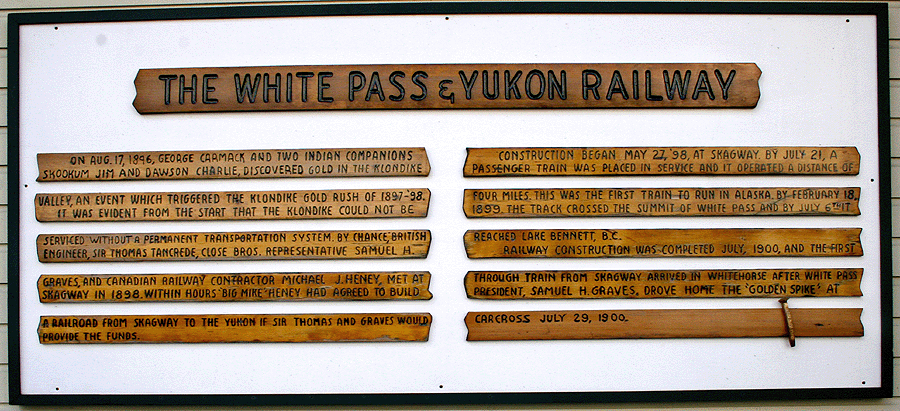 THE WHITE PASS & YUKON RAILWAY
ON AUG. 17, 1896, GEORGE CARMACK AND TWO INDIAN COMPANIONS
SKOOKUM JIM AND DAWSON CHARLIE, DISCOVERED GOLD IN THE KLONDIKE
VALLEY, AN EVENT WHICH TRIGGERED THE KLONDIKE GOLD RUSH OF 1897-'98.
IT WAS EVIDENT FROM THE START THAT THE KLONDIKE COULD NOT BE
SERVICED WITHOUT A PERMANENT TRANSPORTATION SYSTEM. BY CHANCE, BRITISH
ENGINEER, SIR THOMAS TANCREDE, CLOSE BROS. REPRESENTATIVE SAMUEL H.
GRAVES, AND CANADIAN RAILWAY CONTRACTOR MICHAEL J. HENEY, MET AT
SKAGWAY IN 1898. WITHIN HOURS 'BIG MIKE' HENEY HAD AGREED TO BUILD
A RAILROAD FROM SKAGWAY TO THE YUKON IF SIR THOMAS AND GRAVES WOULD
PROVIDE THE FUNDS.
CONSTRUCTION BEGAN MAY 27, '98, AT SKAGWAY. BY JULY 21, A
PASSENGER TRAIN WAS PLACED IN SERVICE AND IT OPERATED A DISTANCE OF
FOUR MILES. THIS WAS THE FIRST TRAIN TO RUN IN ALASKA. BY FEBRUARY 18,
1899. THE TRACK CROSSED THE SUMMIT OF WHITE PASS AND BY JULY 6TH IT
REACHED LAKE BENNETT, B.C.
RAILWAY CONSTRUCTION WAS COMPLETED JULY, 1900, AND THE FIRST
THROUGH TRAIN FROM SKAGWAY ARRIVED IN WHITEHORSE AFTER WHITE PASS
PRESIDENT, SAMUEL H. GRAVES, DROVE HOME THE 'GOLDEN SPIKE' AT
CARCROSS JULY 29, 1900.